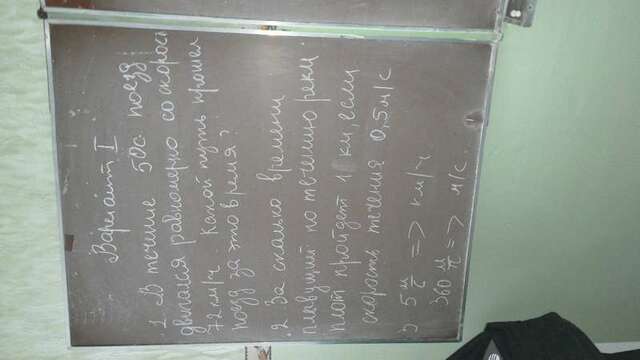 Вариант I
1. В течение 50с поезд
двигался равномерно со скорост
72 км/ч Какой путь прошел
поезд за это время?
2 За сколько времени
плывущий по течению реки
плот пройдет 1 км, если
скорость течения 0,5 м/с
3 5 м/с => км/ч
360 м/с => м/с